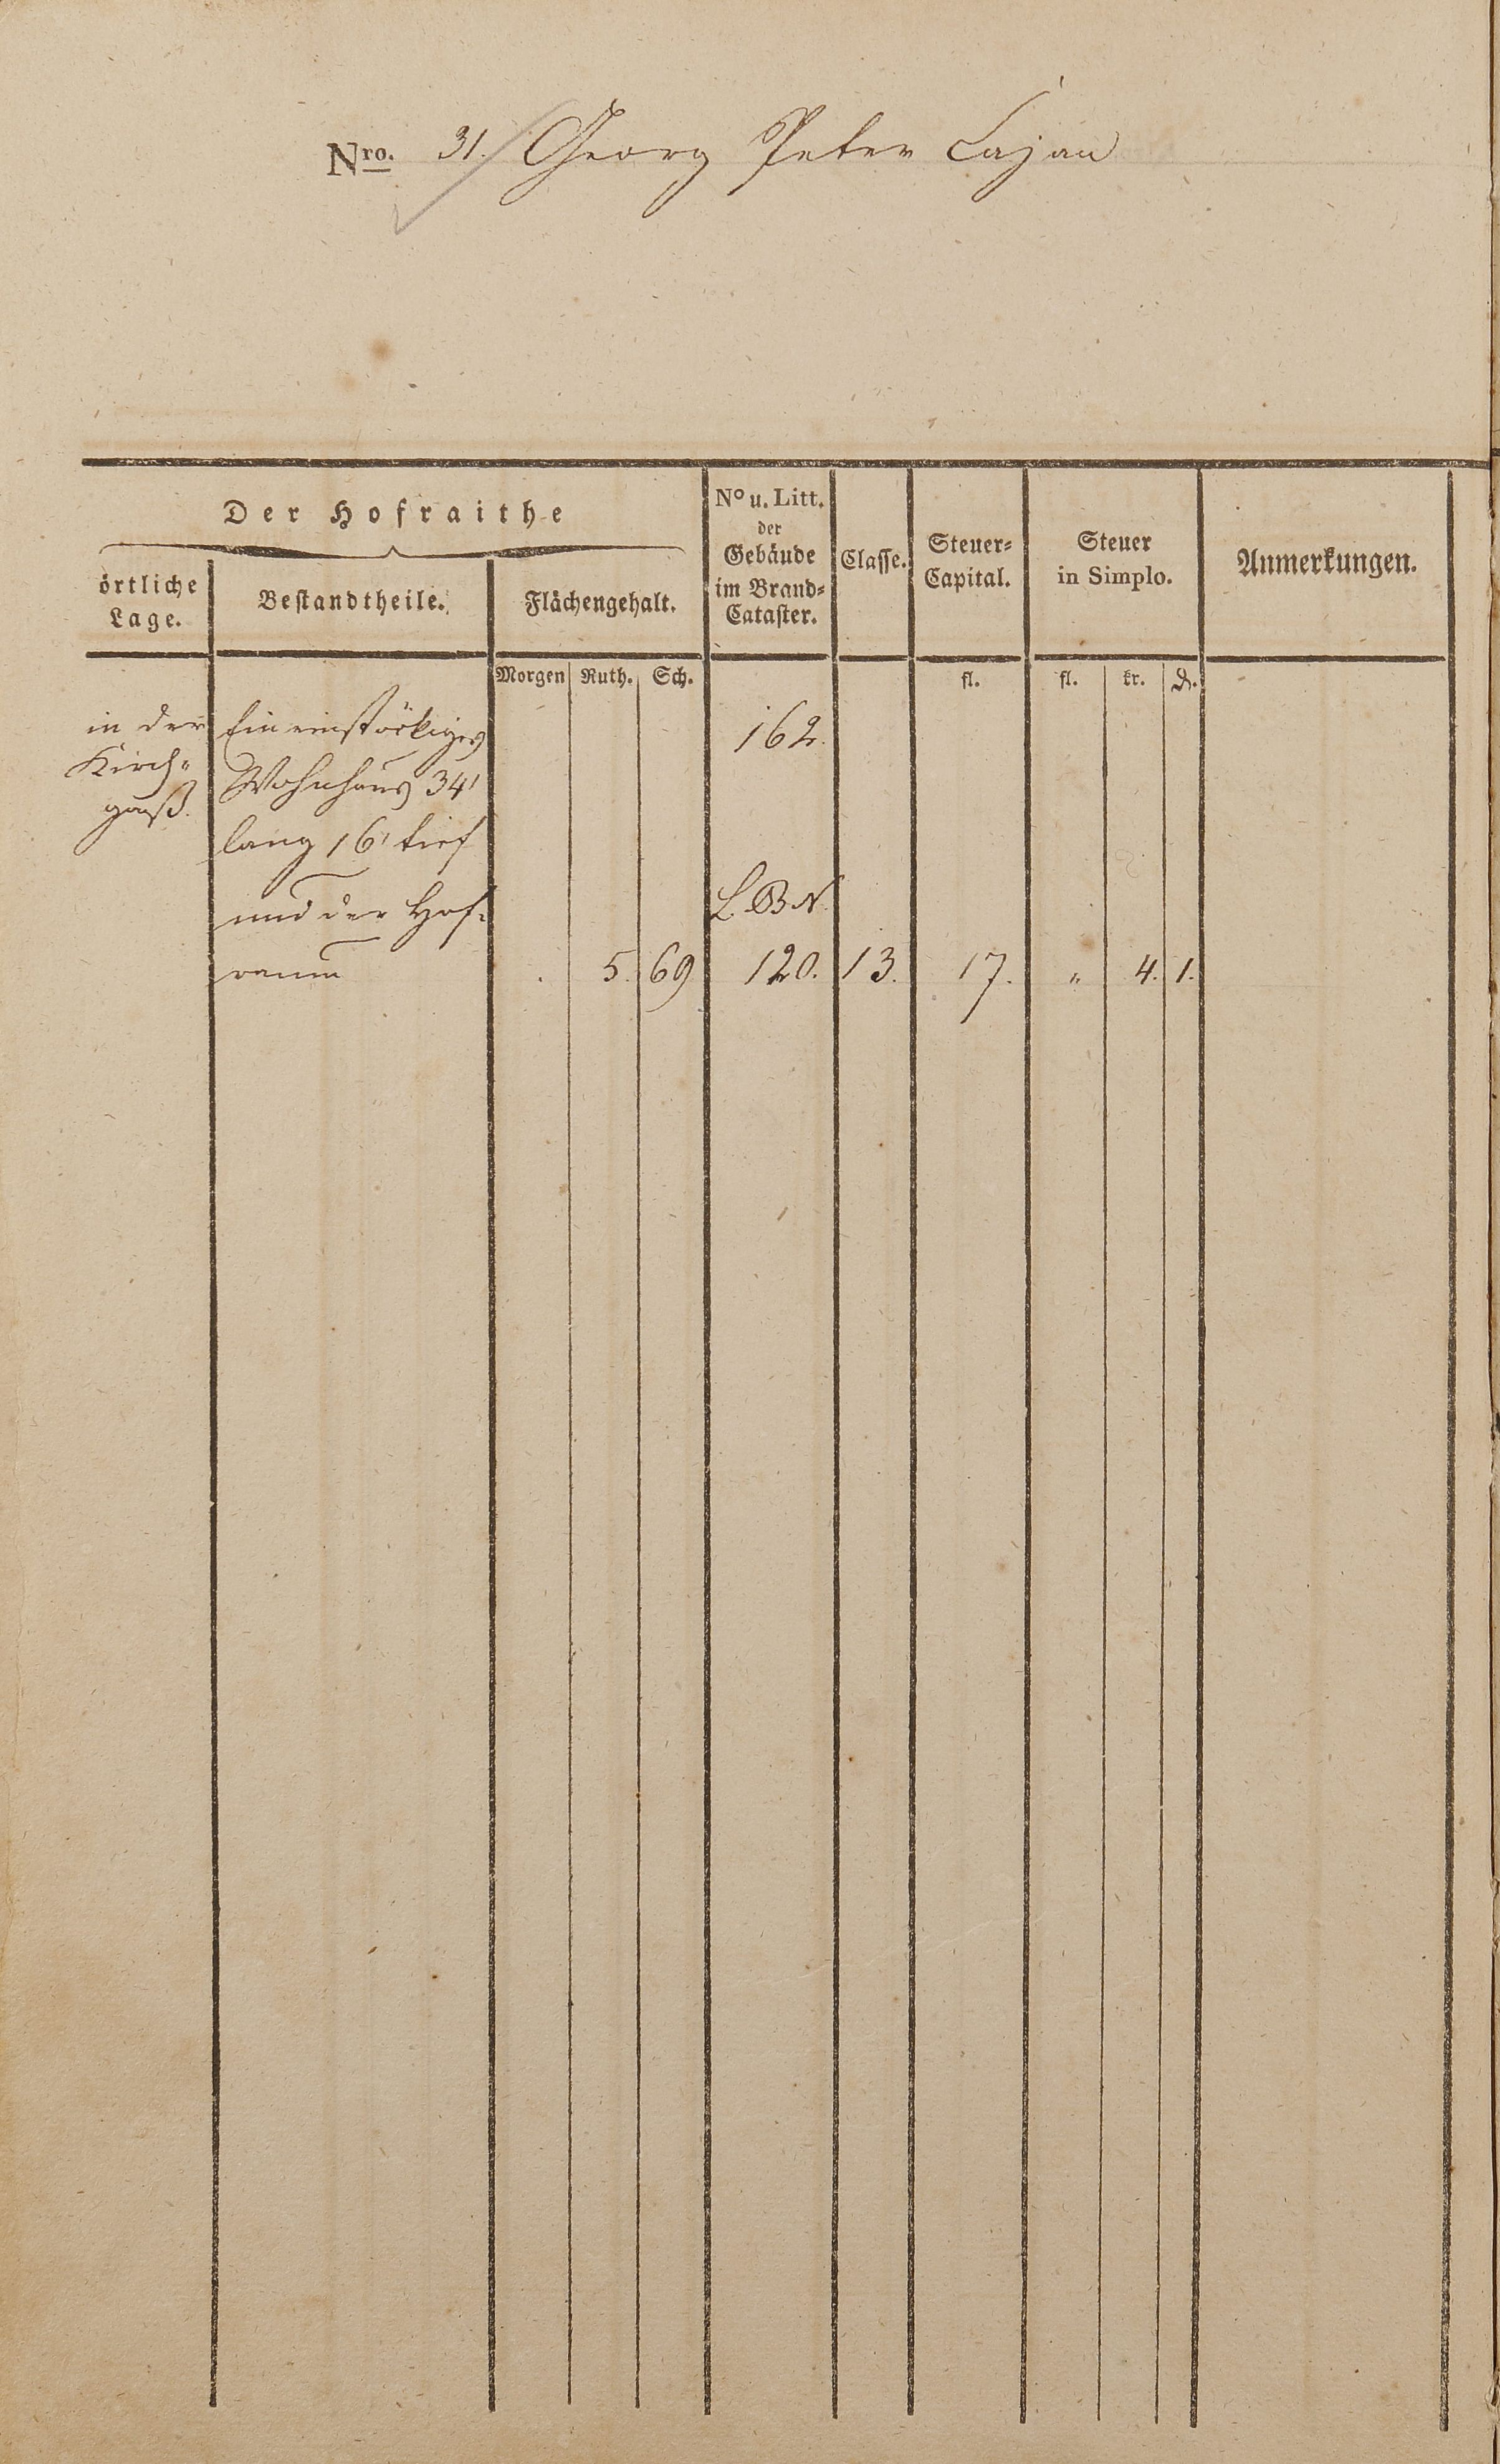 Nro. 31. Georg Peter Cajan
Der Hofraithe
örtliche Lage.
Bestandtheile.
Flächengehalt.
No u. Litt.
der
Gebäude
im Brand=
Cataster.
Classe.
Steuer=
Capital.
Steuer
in Simplo.
Anmerkungen.
Morgen Ruth. Sch. fl. fl. kr. d.
in der Ein einstöckiges 162.
Kirch= Wohnhaus 34'
gaß. lang 16' tief
und der Hof= L. B. N.
raum . 5. 69 120. 13. 17. " 4. 1.